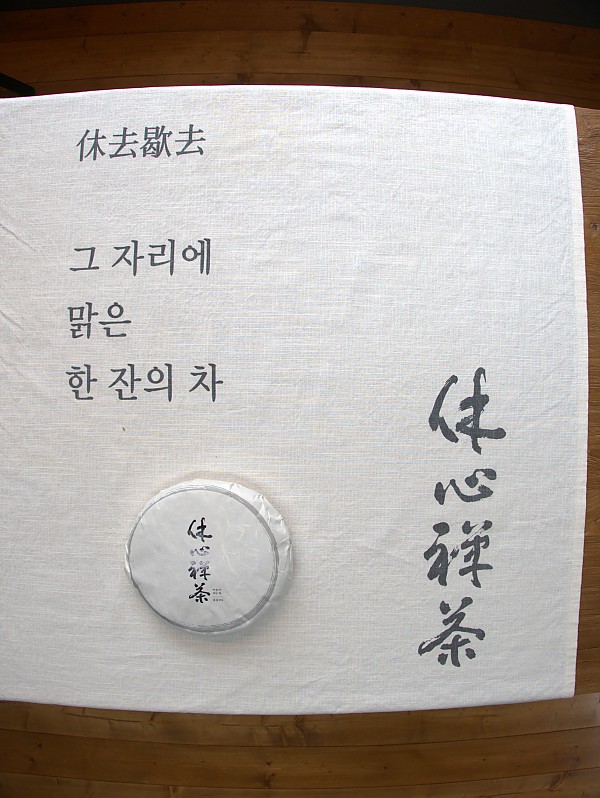 休去歇去
그 자리에
맑은
한 잔의 차
休心禅茶
休心禅茶